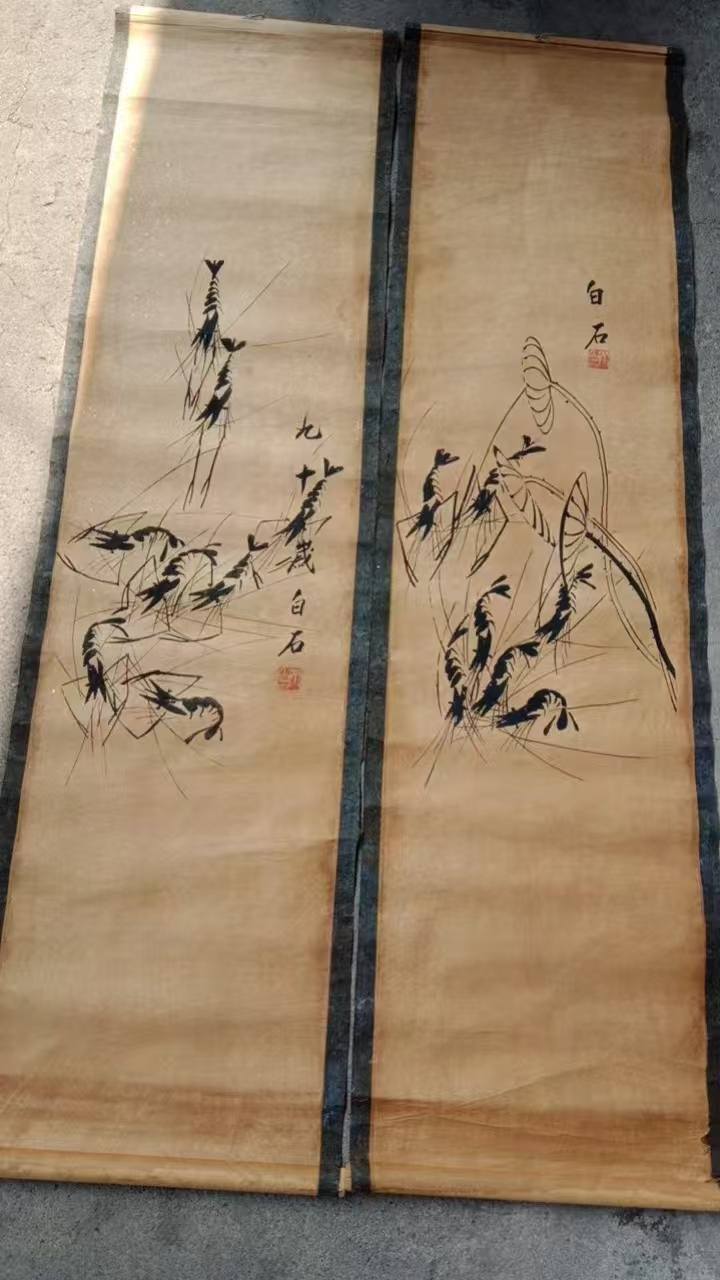 九十歲白石
白石